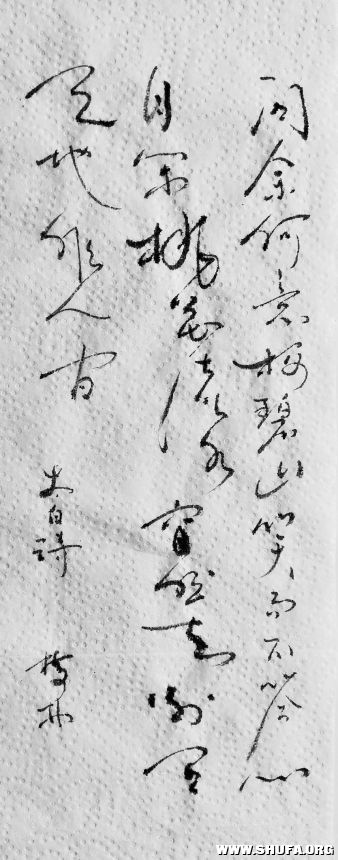 問余何意栖碧山笑而不答心
自閑桃花流水窅然去別有
天地非人間
太白詩
WWW.SHUFA.ORG